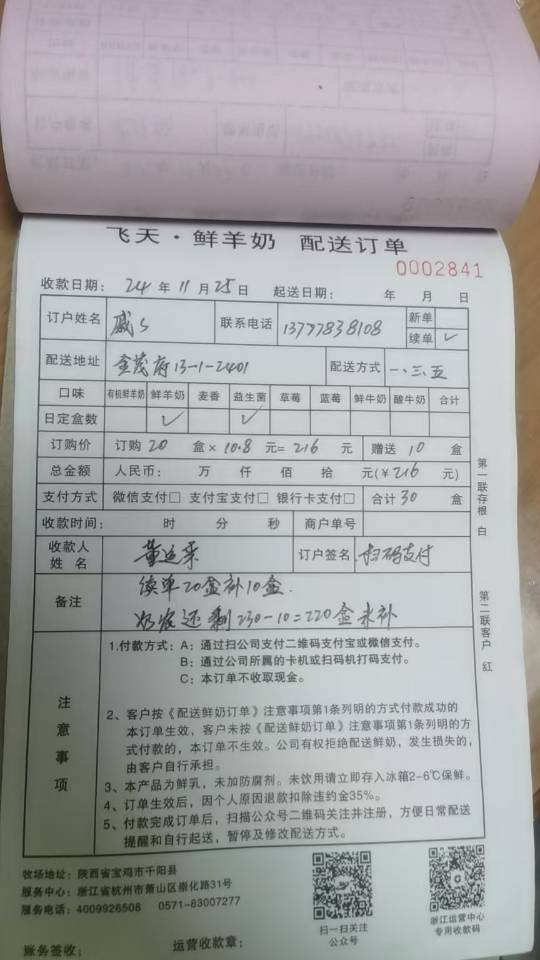 飞天·鲜羊奶 配送订单
0002841
收款日期： 24 年 11 月 25 日 起送日期： 年 月 日
订户姓名 戚 联系电话 13777838108 新单
续单 ✓
配送地址 金茂府13-1-2401 配送方式 一、三、五
口味 有机鲜羊奶 鲜羊奶 麦香 益生菌 草莓 蓝莓 鲜牛奶 酸牛奶 合计
日定盒数 ✓ ✓
订购价 订购 20 盒× 10.8 元= 216 元 赠送 10 盒
总金额 人民币： 万 仟 佰 拾 元(￥216 元)
支付方式 微信支付□ 支付宝支付□ 银行卡支付□ 合计 30 盒
收款时间： 时 分 秒 商户单号
收款人姓名 董 订户签名 扫码支付
备注 续单20盒补10盒
奶 还剩230-10=220盒未补
第一联存根 白
第二联客户 红
注意事项
1.付款方式：A：通过扫公司支付二维码支付宝或微信支付。
B：通过公司所属的卡机或扫码机打码支付。
C：本订单不收取现金。
2、客户按《配送鲜奶订单》注意事项第1条列明的方式付款成功的
本订单生效，客户未按《配送鲜奶订单》注意事项第1条列明的方
式付款的，本订单不生效。公司有权拒绝配送鲜奶，发生损失的，
由客户自行承担。
3、本产品为鲜乳，未加防腐剂。未饮用请立即存入冰箱2-6℃保鲜。
4、订单生效后，因个人原因退款扣除违约金35%。
5、付款完成订单后，扫描公众号二维码关注并注册，方便日常配送
提醒和自行起送，暂停及修改配送方式。
牧场地址：陕西省宝鸡市千阳县
服务中心：浙江省杭州市萧山区崇化路31号
服务电话：4009926508 0571-83007277
扫一扫关注
公众号
浙江运营中心
专用收款码
账务签收： 运营收款章：